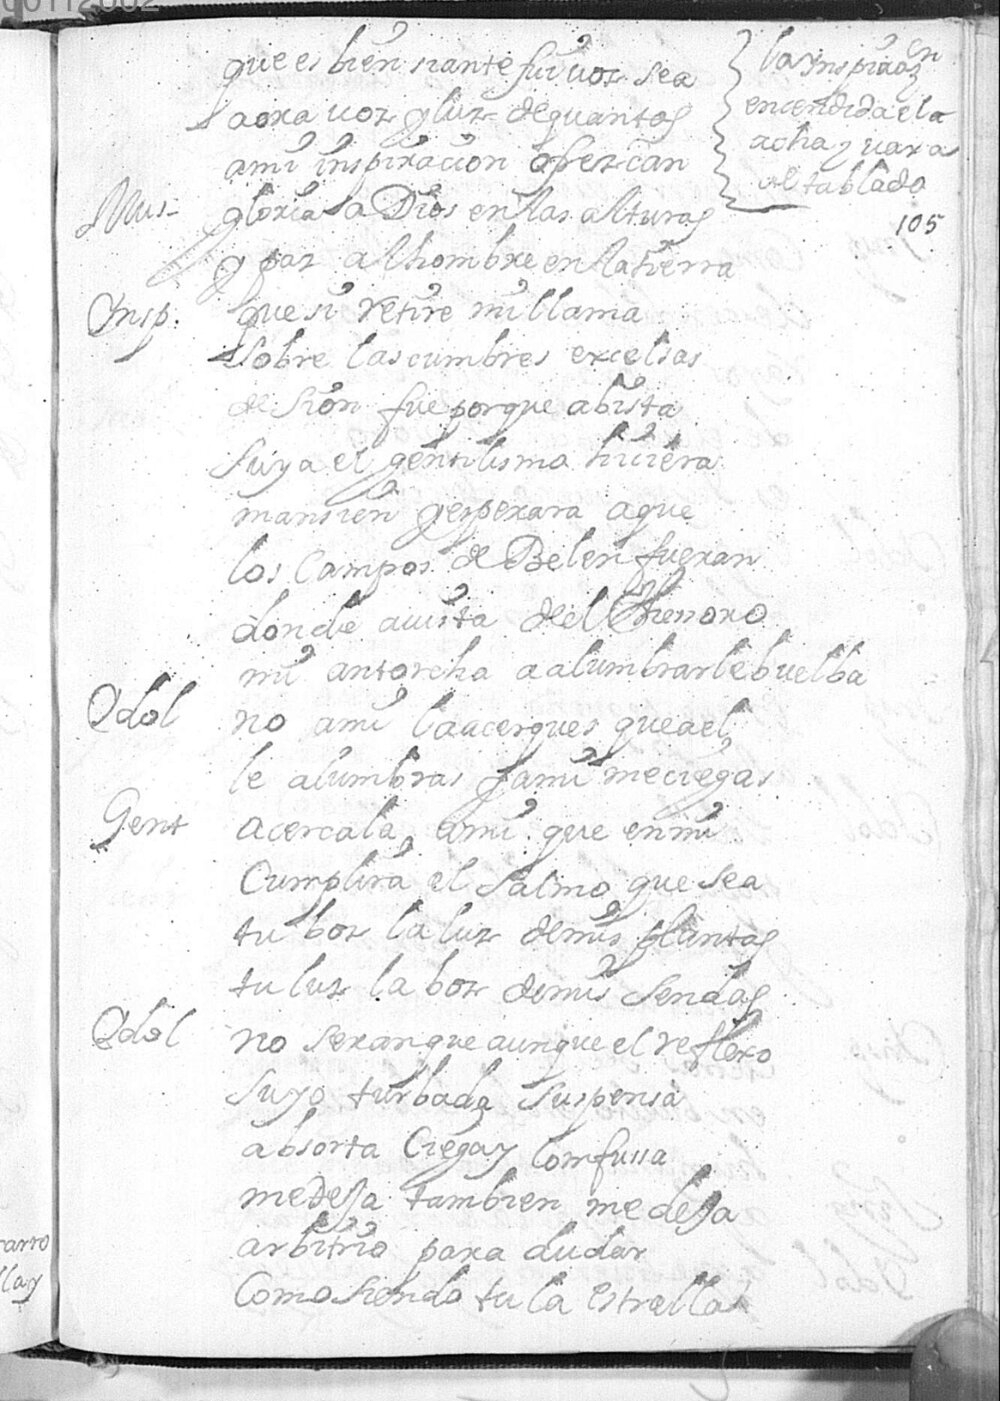 00112002
que es bien si ante fui uoz sea
aora uoz y luz de quantos
ami inspiracion ofrezcan
la Inspiraon
encendida ela
acha y uaxa
al tablado
105
Mus- gloria a Dios en las alturas
y paz al hombre en la tierra
Insp. que si retire mi llama
sobre las cumbres excelsas
de sion fue porque abista
suya el gentilismo hiciera
mansien y esperara a que
los Campos de Belen fueran
donde auista del themoro
mi antorcha a alumbrarle buelba
Idol no ami la acerques que a el
le alumbras y ami me ciegas
Gent acercala ami que en mi
Cumplira el salmo que sea
tu boz la luz de mis plantas
tu luz la boz de mis sendas
Idol no seran que aunque el reflexo
suyo turbada suspensa
absorta Ciega y Confussa
me deja tambien me deja
arbitrio para dudar
Como siendo tu la estrella
rarro
llay